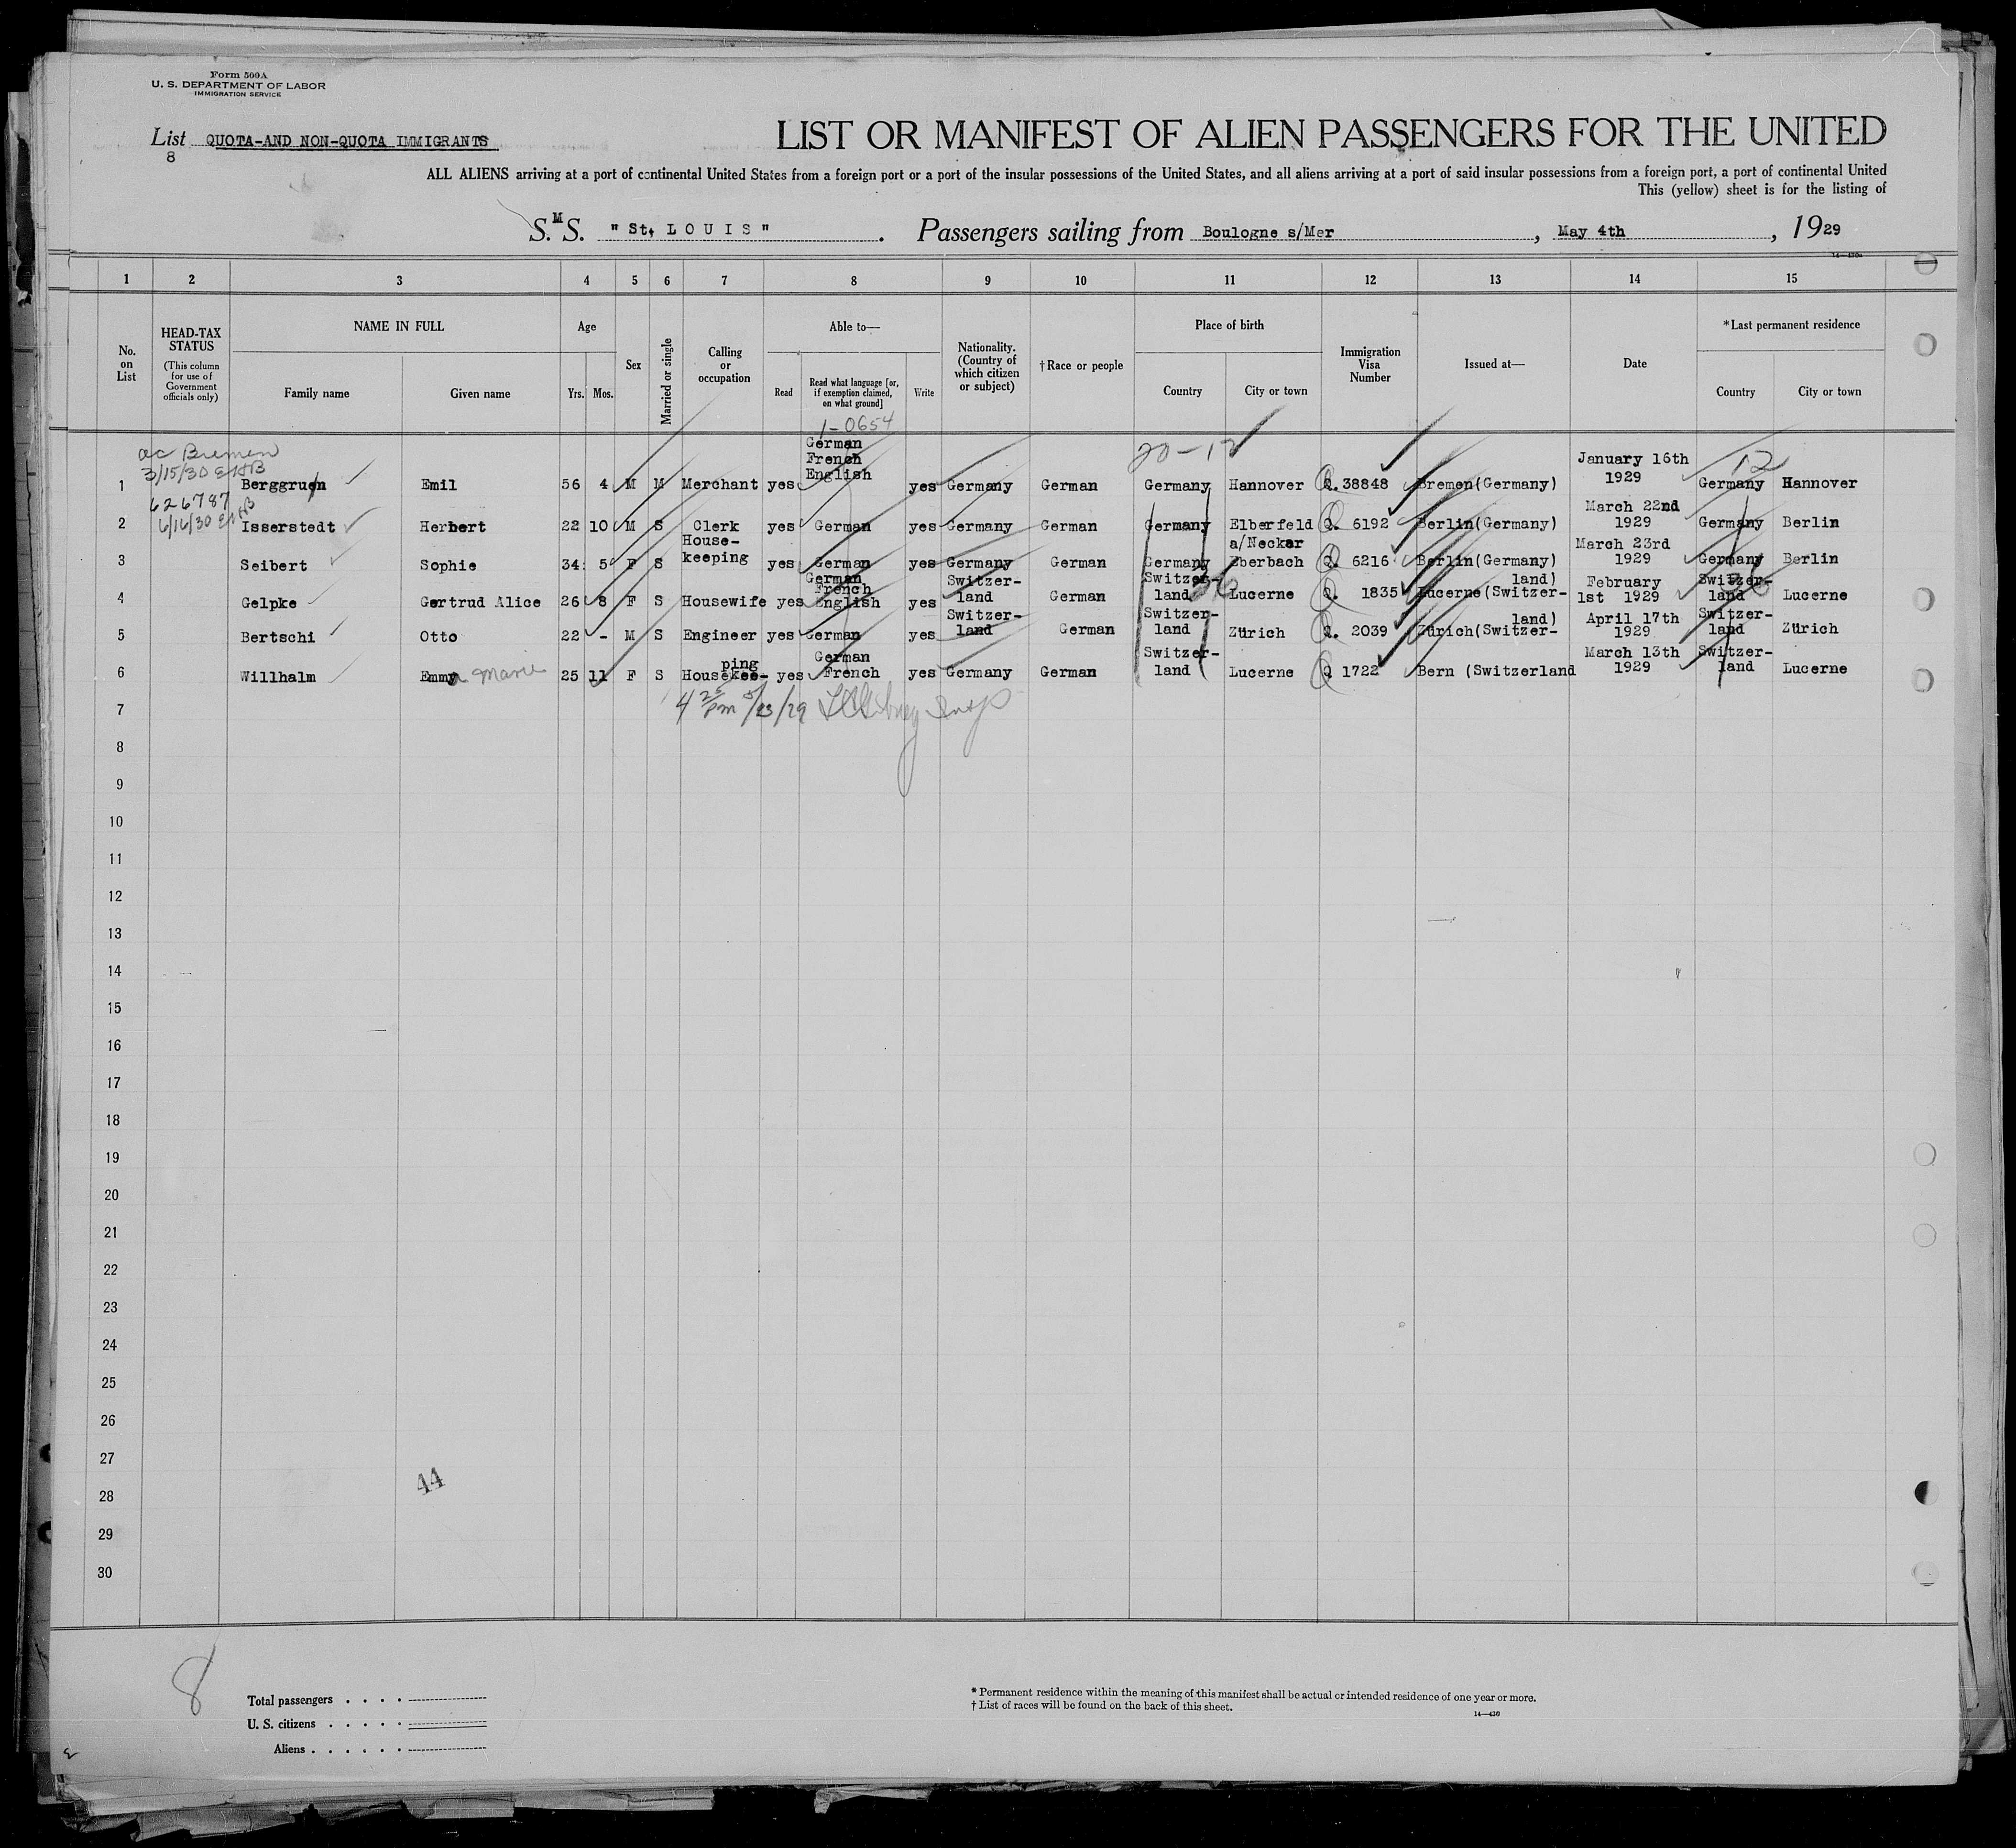 Form 500A
U. S. DEPARTMENT OF LABOR
IMMIGRATION SERVICE
List QUOTA-AND NON-QUOTA IMMIGRANTS
8
LIST OR MANIFEST OF ALIEN PASSENGERS FOR THE UNITED
ALL ALIENS arriving at a port of continental United States from a foreign port or a port of the insular possessions of the United States, and all aliens arriving at a port of said insular possessions from a foreign port, a port of continental United
This (yellow) sheet is for the listing of
S. M S. "St. LOUIS". Passengers sailing from Boulogne s/Mer, May 4th, 1929
1 2 3 4 5 6 7 8 9 10 11 12 13 14 15
No. on List
HEAD-TAX STATUS (This column for use of Government officials only)
NAME IN FULL
Family name Given name
Age
Yrs. Mos.
Sex
Married or single
Calling or occupation
Able to—
Read Read what language [or, if exemption claimed, on what ground] Write
Nationality. (Country of which citizen or subject)
†Race or people
Place of birth
Country City or town
Immigration Visa Number
Issued at—
Date
*Last permanent residence
Country City or town
1-0654
20-12
12
ac Bremen
3/15/30 EHB
1 Berggruen Emil 56 4 M M Merchant yes German French English yes Germany German Germany Hannover Q.38848 Bremen(Germany) January 16th 1929 Germany Hannover
626787
6/16/30 EHB
2 Isserstedt Herbert 22 10 M S Clerk yes German yes Germany German Germany Elberfeld Q. 6192 Berlin(Germany) March 22nd 1929 Germany Berlin
3 Seibert Sophie 34 5 F S House-keeping yes German yes Germany German Germany a/Neckar Eberbach Q. 6216 Berlin(Germany) March 23rd 1929 Germany Berlin
36 36
4 Gelpke Gertrud Alice 26 8 F S Housewife yes German French English yes Switzer-land German Switzer-land Lucerne Q. 1835 Lucerne(Switzer-land) February 1st 1929 Switzer-land Lucerne
5 Bertschi Otto 22 - M S Engineer yes German yes Switzer-land German Switzer-land Zürich Q. 2039 Zürich(Switzer-land) April 17th 1929 Switzer-land Zürich
6 Willhalm Emma Marie 25 11 F S Housekee-ping yes German French yes Germany German Switzer-land Lucerne Q 1722 Bern (Switzerland March 13th 1929 Switzer-land Lucerne
4 25 pm 5/13/29
7
8
9
10
11
12
13
14
15
16
17
18
19
20
21
22
23
24
25
26
27
44
28
29
30
8
Total passengers . . . .
U. S. citizens . . . . .
Aliens . . . . . .
* Permanent residence within the meaning of this manifest shall be actual or intended residence of one year or more.
† List of races will be found on the back of this sheet.
14—430